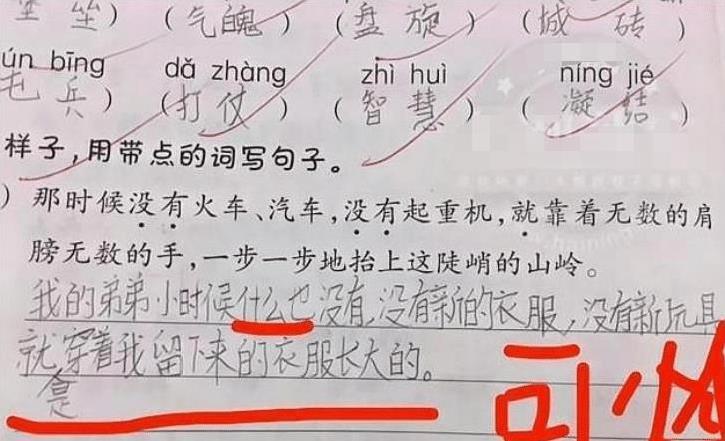 垒 ) (气魄) (盘旋) (城砖)
ún bīng dǎ zhàng zhì huì níng jié
屯兵) (打仗) (智慧) (凝结)
样子,用带点的词写句子。
) 那时候没有火车、汽车,没有起重机,就靠着无数的肩
膀无数的手,一步一步地抬上这陡峭的山岭。
我的弟弟小时候什么也没有,没有新的衣服,没有新玩具
就穿着我留下来的衣服长大的。
是
可怜